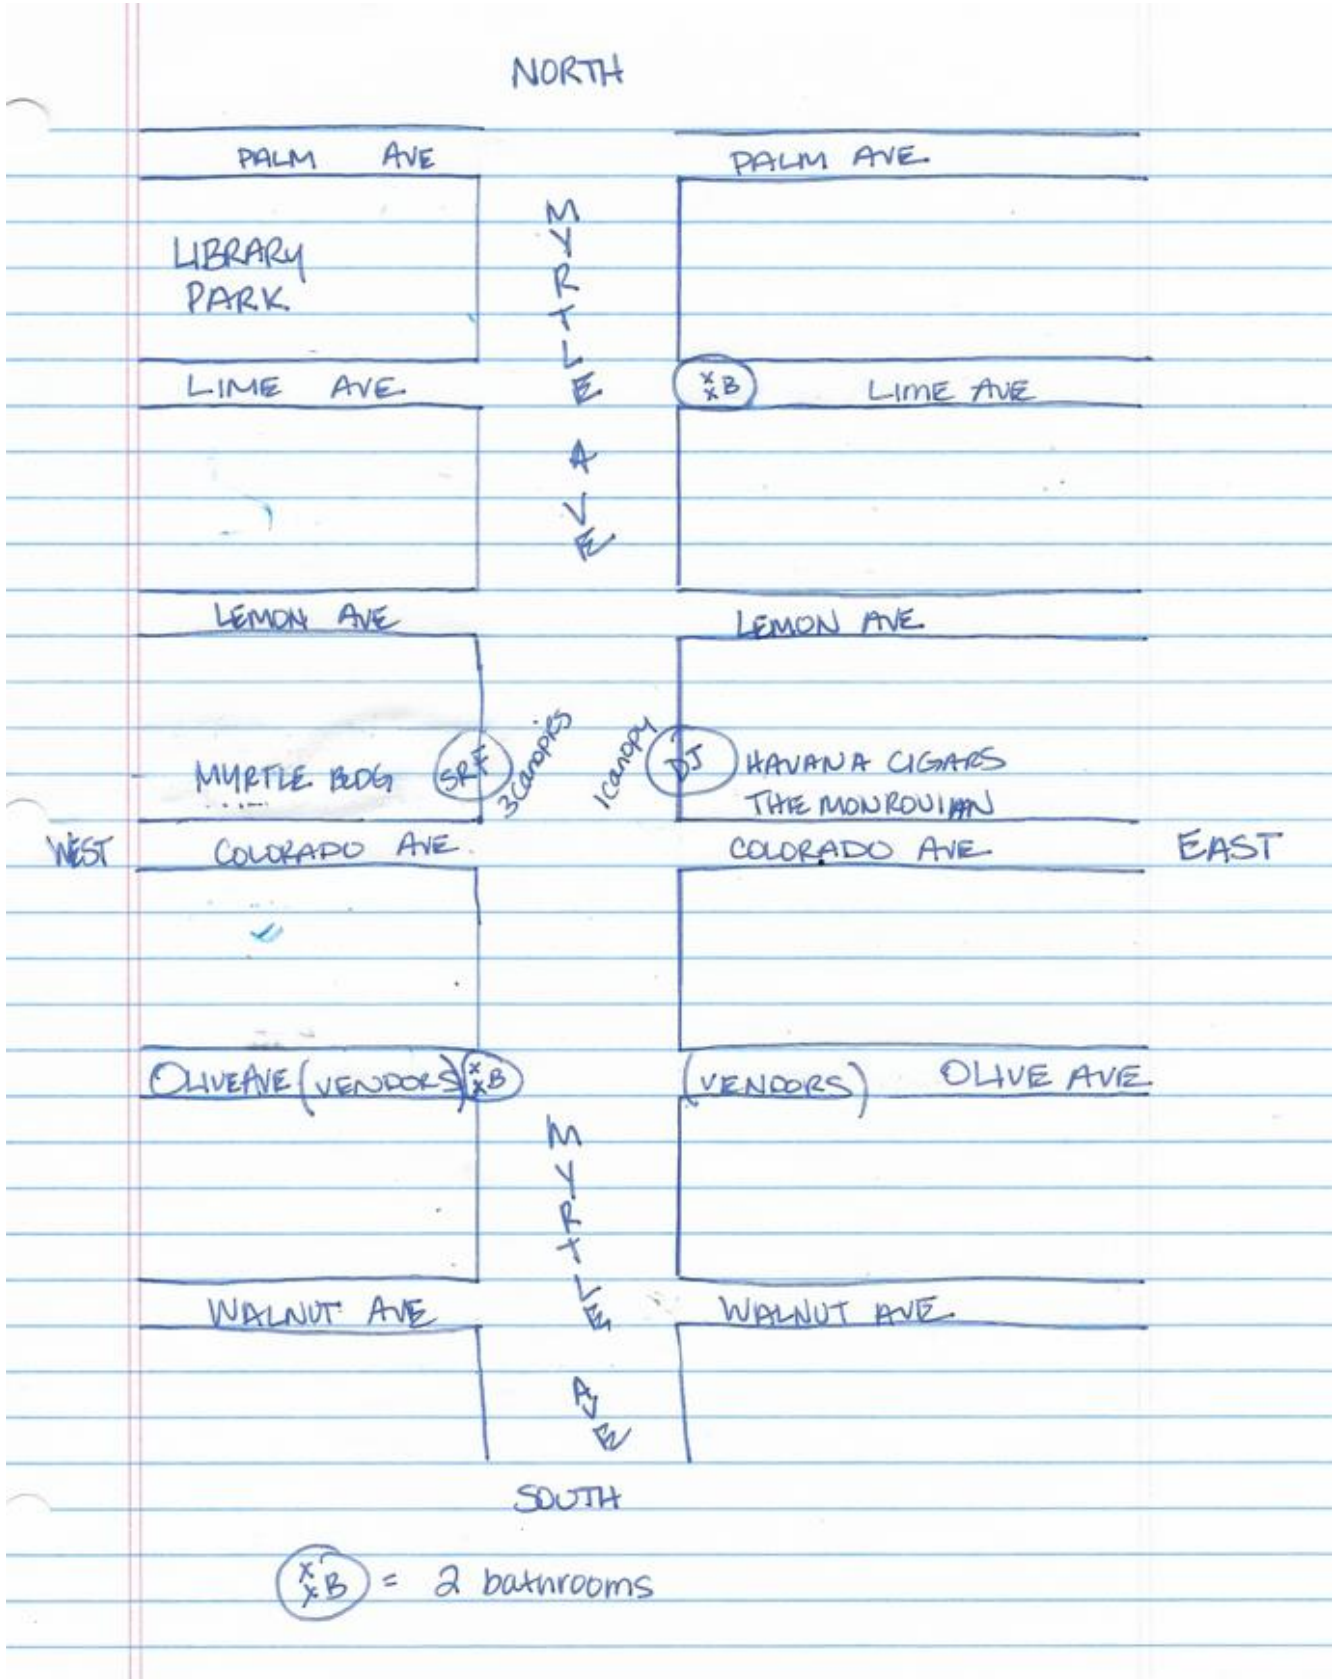 NORTH
PALM AVE
PALM AVE.
MYRTLE AVE
LIBRARY
PARK
LIME AVE.
xx B
LIME AVE
LEMON AVE
LEMON AVE.
MYRTLE BLDG
SRF
3 canopies
1 canopy
DJ
HAVANA CIGARS
THE MONROVIAN
WEST
COLORADO AVE.
COLORADO AVE.
EAST
OLIVE AVE (VENDORS)
xx B
(VENDORS) OLIVE AVE.
MYRTLE AVE
WALNUT AVE
WALNUT AVE.
SOUTH
xx B = 2 bathrooms